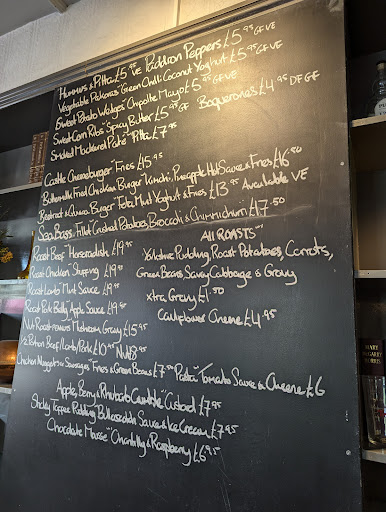 Hummus & Pitta £5.95 VE Padron Peppers £5.95 GF VE
Vegetable Pakoras "Green Chilli Coconut Yoghut £5.95 GF VE
Sweet Potato Wedges "Chipotle Mayo £5.95 GF VE
Sweet-Corn Ribs "Spicy Butter £5.95 GF Boquerones £4.95 DF GF
Smoked Mackerel Pate "Pitta" £7.95
Castle Cheeseburger "Fries £15.95
Buttermilk Fried Chicken Burger "Kimchi, Pineapple Hot Sauce & Fries £16.50
Beetroot & Quinoa Burger "Feta, Mint Yoghut & Fries £13.95 Available VE
Sea Bass Fillet Crushed Potatoes, Broccoli & Chimmichurri £17.50
Roast Beef "Horseradish £19.95
Roast Chicken Stuffing £19.95
Roast Lamb "Mint Sauce £19.95
Roast Pork Belly "Apple Sauce £19.95
Nut Roast Mushroom Gravy £15.95
1/2 Portion Beef/Lamb/Pork £10.95 Nut £8.95
All Roasts "
Yorkshire Pudding, Roast Potatoes, Carrots,
Green Beans, Savoy Cabbage & Gravy
xtra Gravy £1.50
Cauliflower Cheese £4.95
Chicken Nuggets or Sausages Fries & Green Beans £7.50 Pasta "Tomato Sauce & Cheese £6
Apple, Berry & Rhubarb Crumble "Custard £7.95
Sticky Toffee Pudding Butterscotch Sauce & Ice Cream £7.95
Chocolate Mousse "Chantilly & Raspberry £6.95